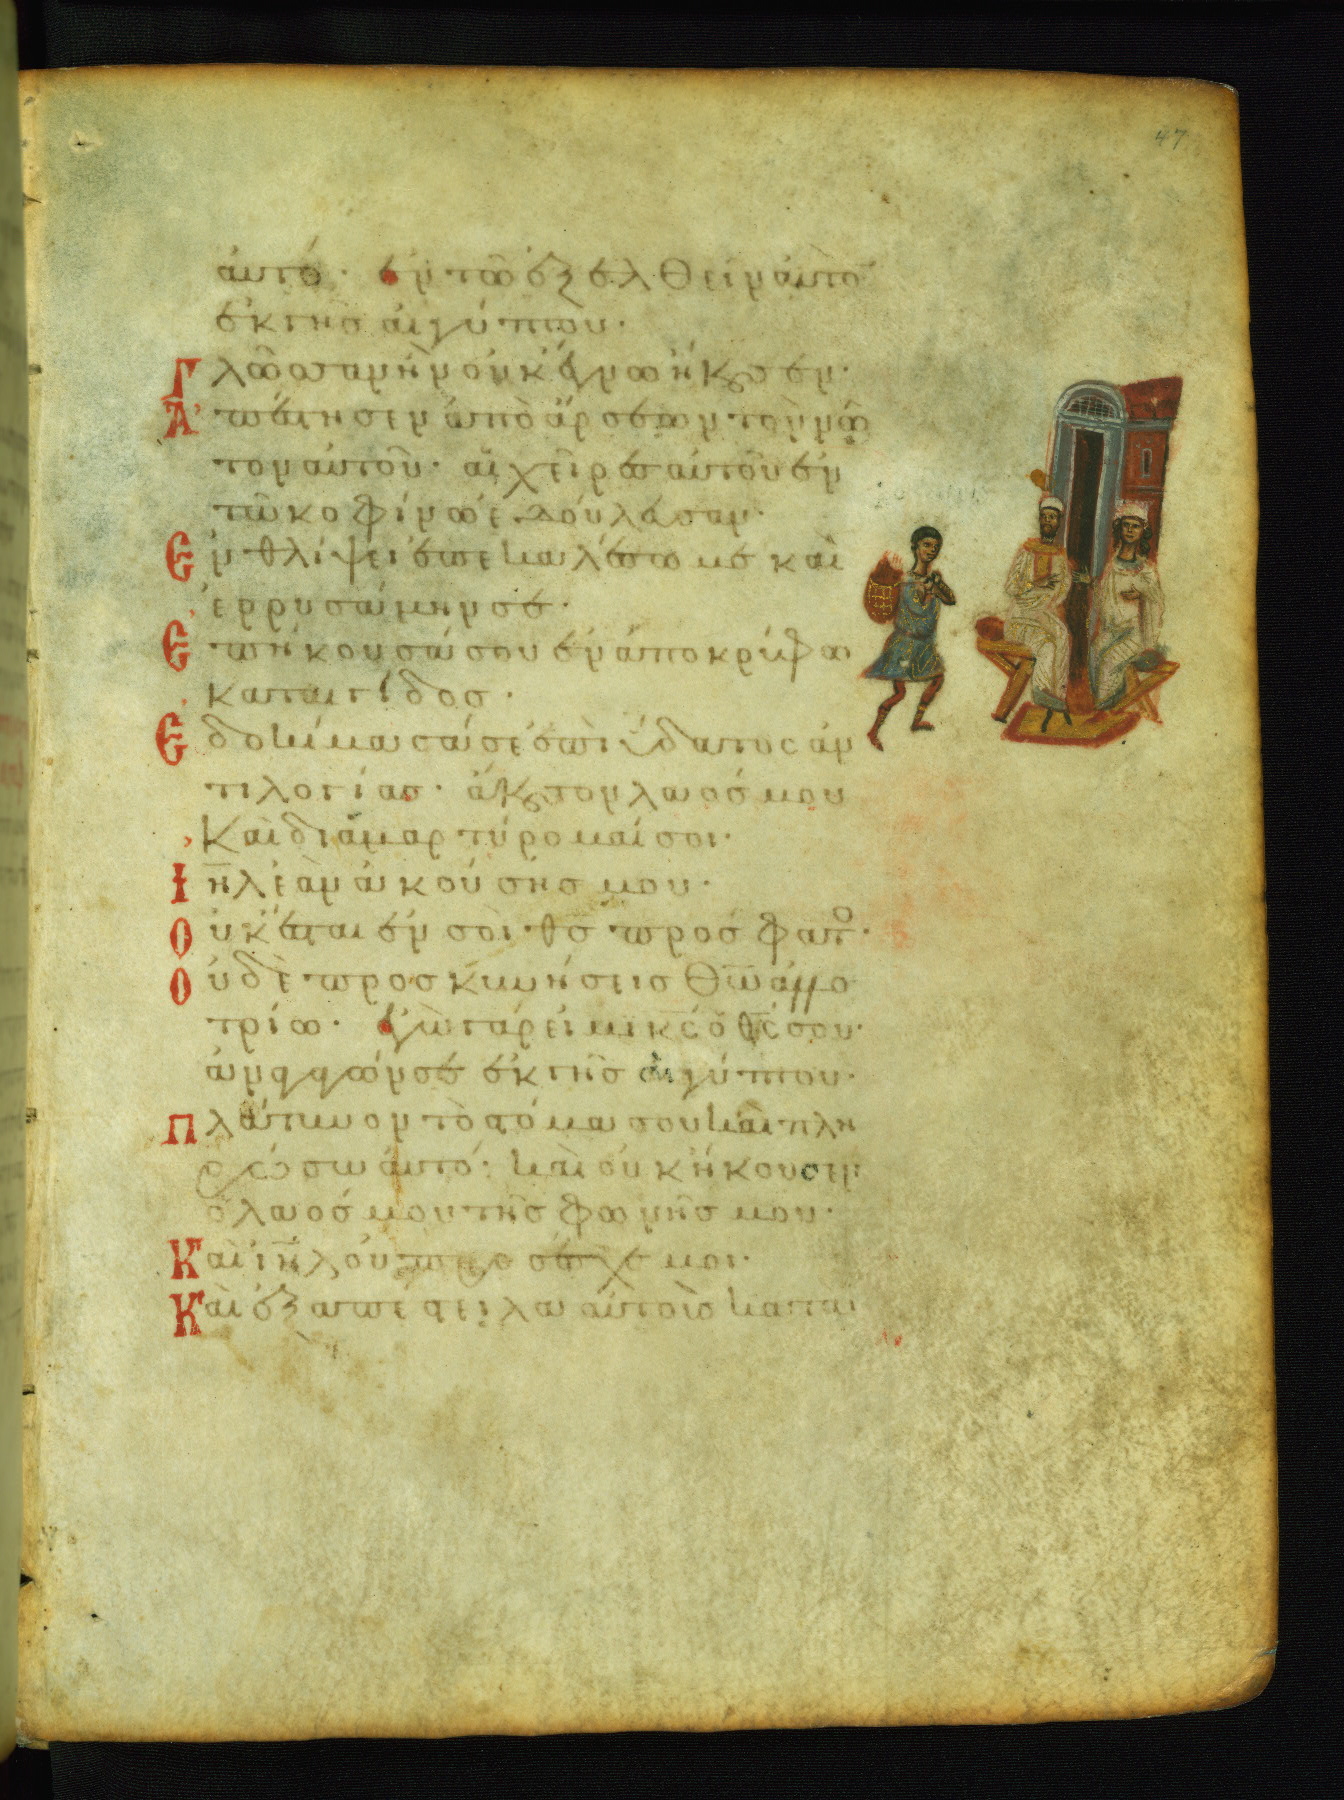 47
ἀυτό· ἐν τῶ ἐξελθεῖν ἀυτὸ
ἐκ γῆσ αἰγύπτου·
Γλῶσσαν ἣν οὐκ ἔγνω ἤκουσεν·
Ἀπέστησεν ἀπὸ ἄρσεων τὸν νῶ
τον αὐτοῦ· αἱ χεῖρεσ αὐτοῦ ἐν
τῶ κοφίνω ἐδούλευσαν·
Ἐν θλίψει ἐπεκαλέσω με καὶ
ἐρρυσάμην σε·
Ἐπήκουσά σου ἐν ἀποκρύφω
καταιγίδοσ·
Ἐδοκίμασά σε ἐπὶ ὕδατος ἀν
τιλογίασ· ἄκουσον λαόσ μου
Καὶ διαμαρτύρομαί σοι·
Ιη̄λ ἐὰν ἀκούσησ μου·
Οὐκ ἔσται ἐν σοὶ θσ̄ πρόσφατο·
Οὐδὲ προσκυνήσεισ θω̄ ἀλλο
τρίω· ἐγὼ γάρ εἰμι κς̄ ὁ θς̄ σου·
ὁ ἀναγαγών σε ἐκ γῆσ αἰγύπτου·
Πλάτυνον τὸ στόμα σου καὶ πλη
ρώσω αὐτό· καὶ οὐκ ἤκουσεν
ὁ λαόσ μου τῆσ φωνῆσ μου·
Καὶ ιη̄λ οὐ προσέσχε μοι·
Καὶ ἐξαπέστειλα αὐτοὺσ κατὰ